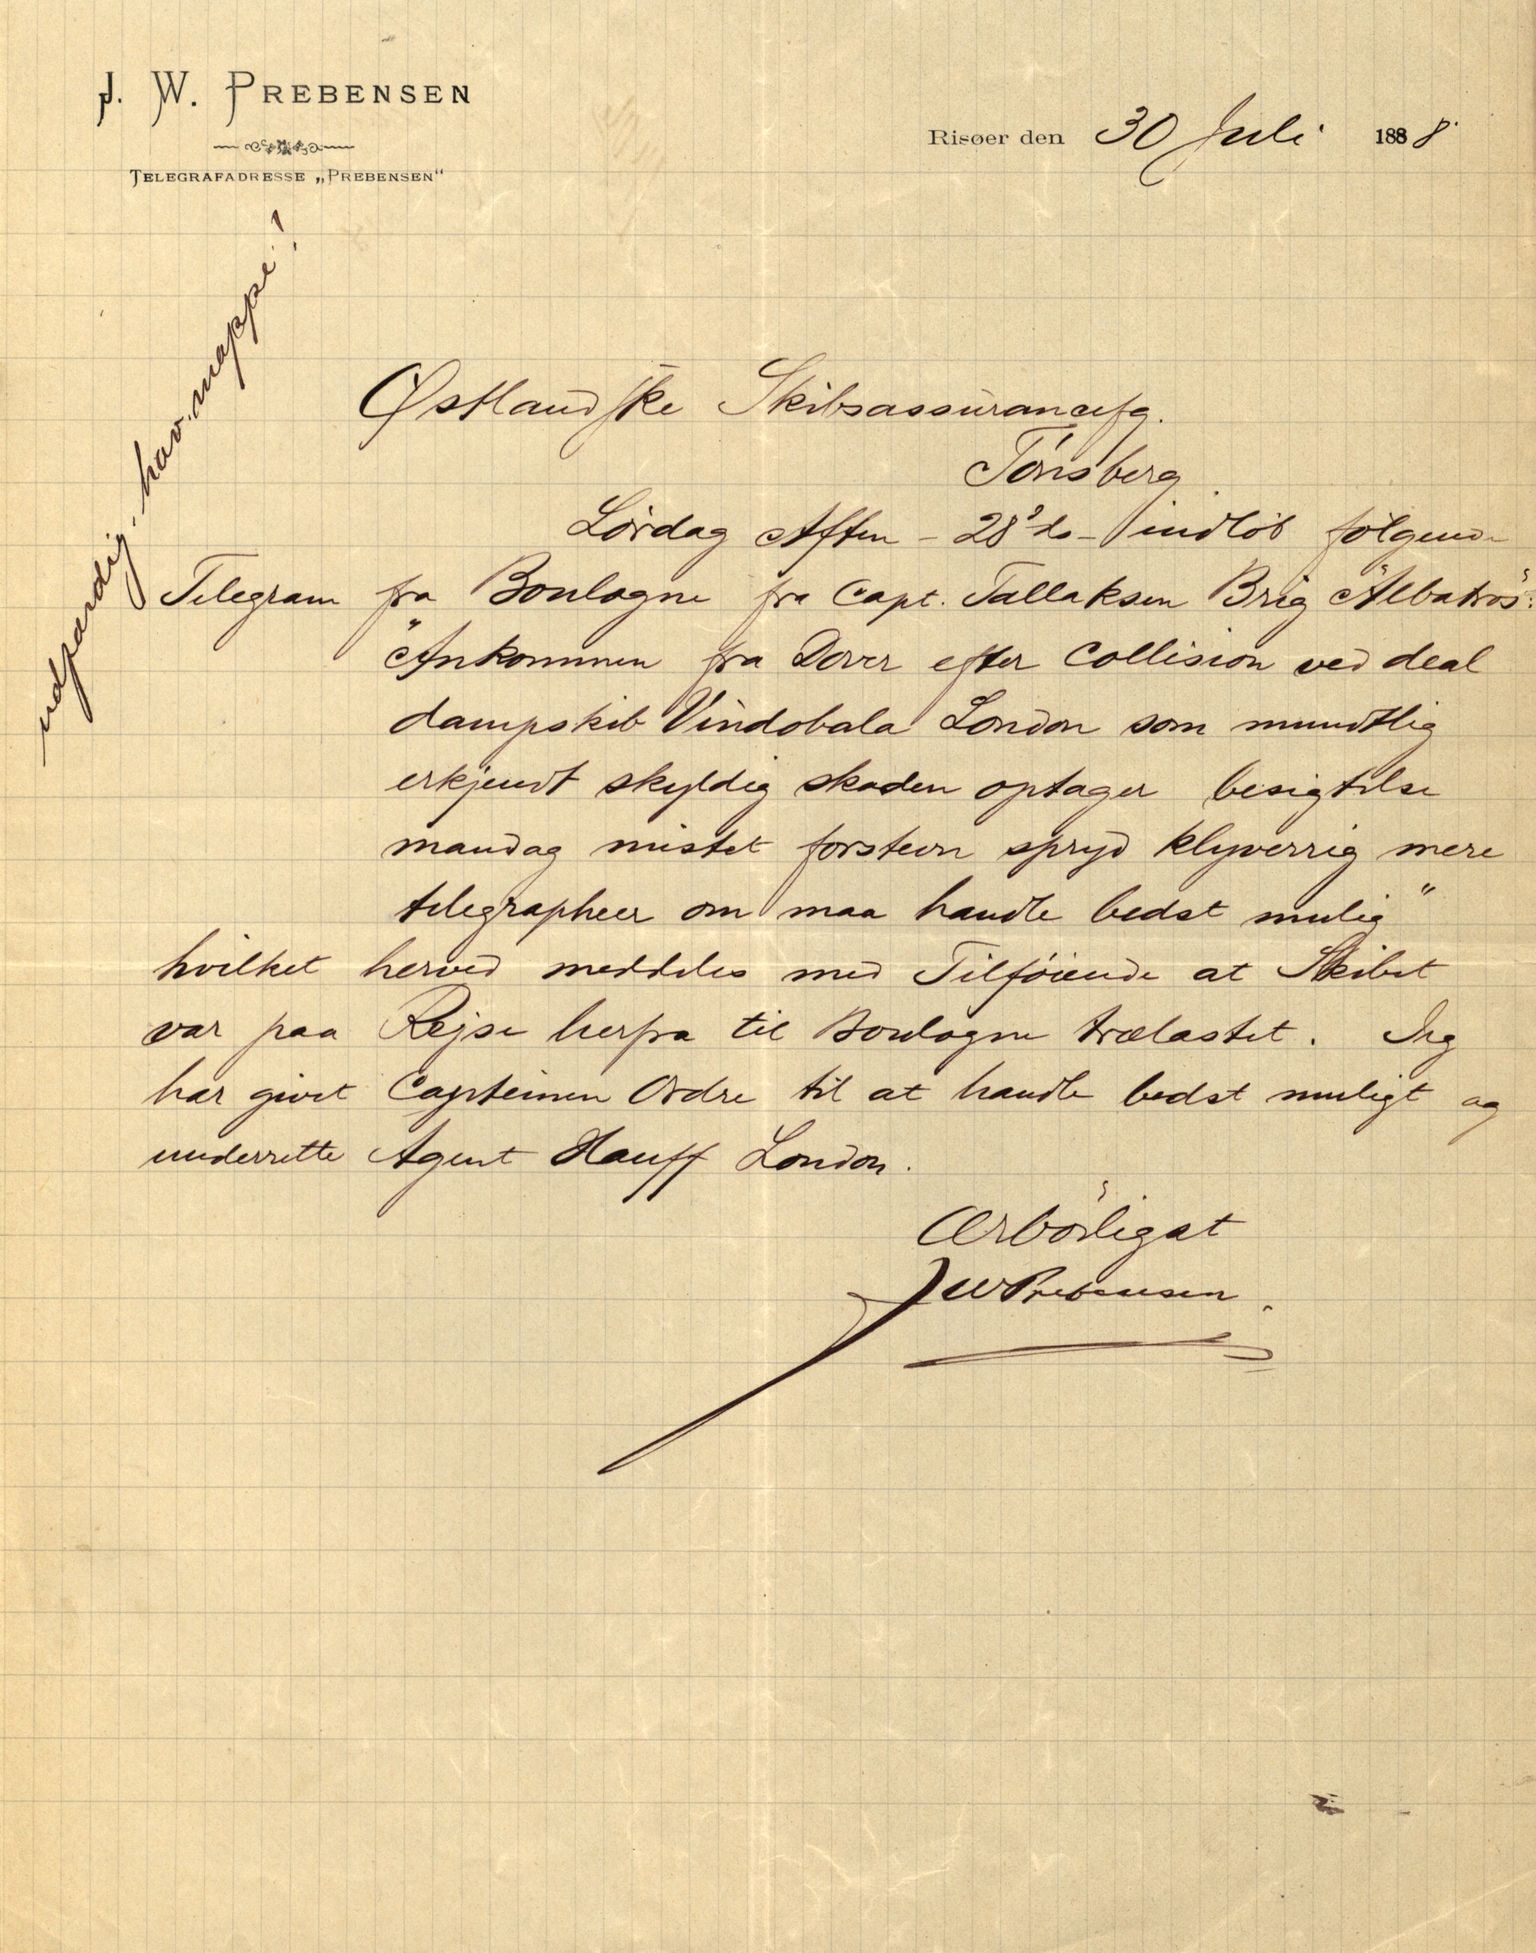 J. W. PREBENSEN
TELEGRAFADRESSE „PREBENSEN“
Risøer den 30 Juli 1888
hav. mappe!
Østlandske Skibsassurancefg.
Tönsberg
Lördag Aften – 28 ds – indlöb følgende
Telegram fra Boulogne fra Capt. Tallaksen Brig "Albatros":
"Ankommen fra Dover efter Collision ved deal
dampskib Vindobala London som mundtlig
erkjendt skyldig skaden optager besigtelse
mandag mistet forstevn spryd klyverrig mere
telegrapheer om maa handle bedst mulig"
hvilket herved meddeles med Tilföiende at Skibet
var paa Rejse herfra til Boulogne trælastet. Jeg
har givet Capteinen Ordre til at handle bedst muligt og
underrette Agent Hauff London.
Ærbödigst
J W Prebensen.